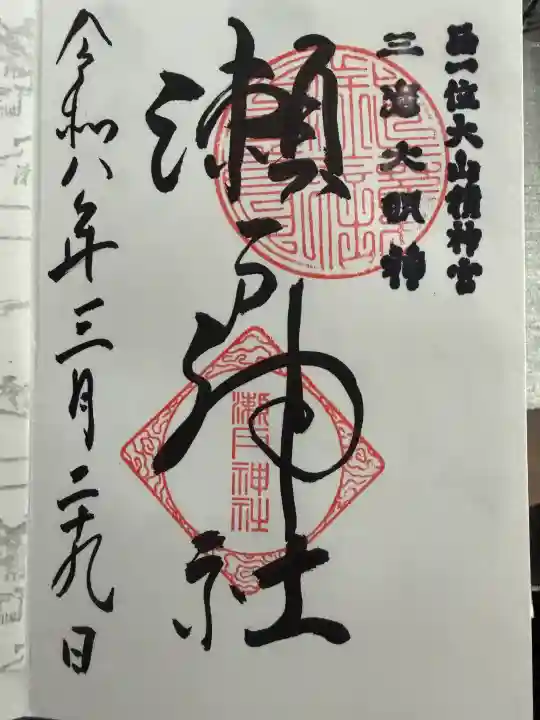 正一位大山積神宮
三島大明神
瀬戸神社
瀬戸神社
令和八年三月二十九日